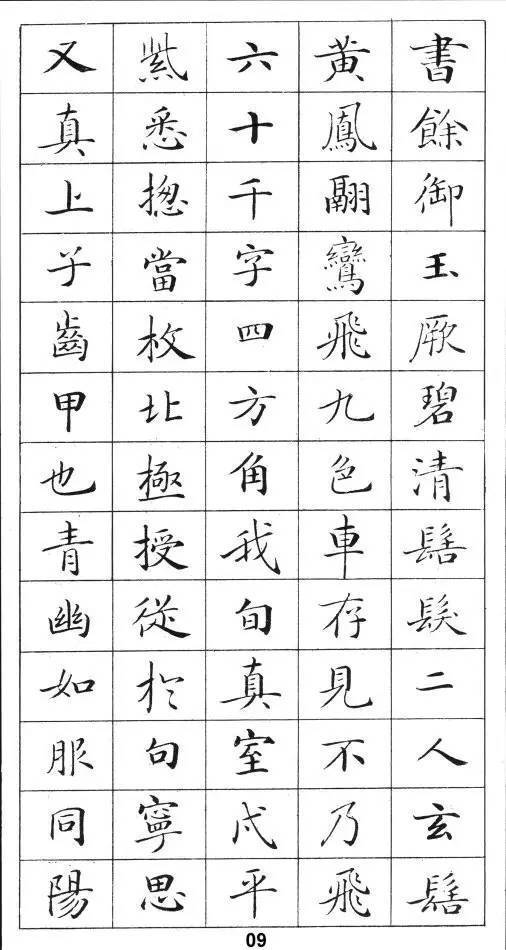 書餘御玉厥碧清鬐髮二人玄鬐
黃鳳翮鸞飛九色車存見不乃飛
六十千字四方角我旬真室戍平
紫悉揔當枚北極授從於句寧思
又真上子齒甲也青幽如服同陽
09